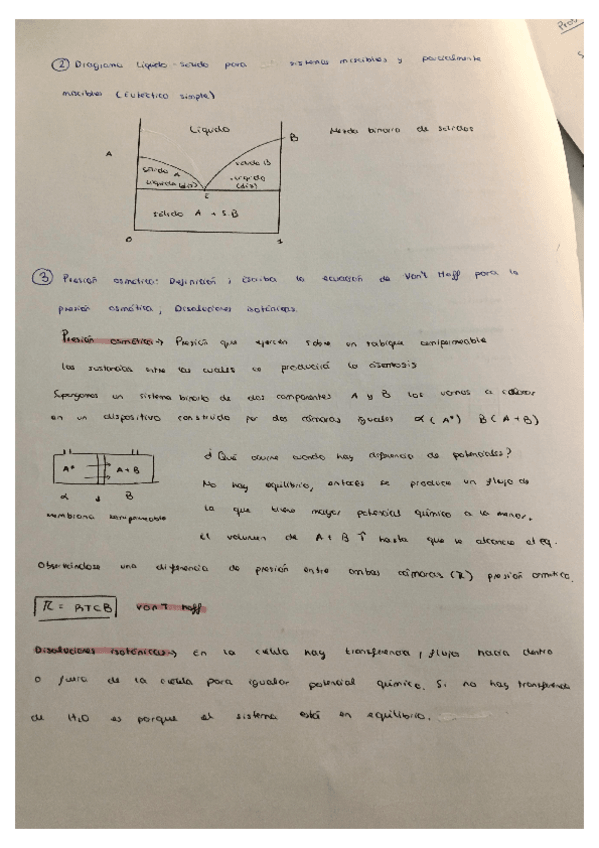 ② Diagrama líquido-sólido para sistemas miscibles y parcialmente
miscibles (Eutéctico simple)
Líquido
A
B
Mezcla binaria de sólidos
sólido A
líquido (dis)
sólido B
+ líquido
(dis)
E
sólido A + S.B
0
1
③ Presión osmótica: Definición; escriba la ecuación de Von't Hoff para la
presión osmótica; Disoluciones isotónicas.
Presión osmótica → Presión que ejercen sobre un tabique semipermeable
las sustancias entre las cuales se producirá la ósmosis
Supongamos un sistema binario de dos componentes A y B los vamos a colocar
en un dispositivo construido por dos cámaras iguales α (A*) B (A+B)
A* A+B
α B
membrana semipermeable
¿Qué ocurre cuando hay diferencia de potenciales?
No hay equilibrio, entonces se produce un flujo de
la que tiene mayor potencial químico a la menor,
el volumen de A+B ↑ hasta que se alcance el eq.
Observándose una diferencia de presión entre ambas cámaras (π) presión osmótica.
π = RTCB Von't Hoff
Disoluciones isotónicas → En la célula hay transferencia, flujos hacia dentro
o fuera de la célula para igualar potencial químico. Si no hay transferencia
de H₂O es porque el sistema está en equilibrio.